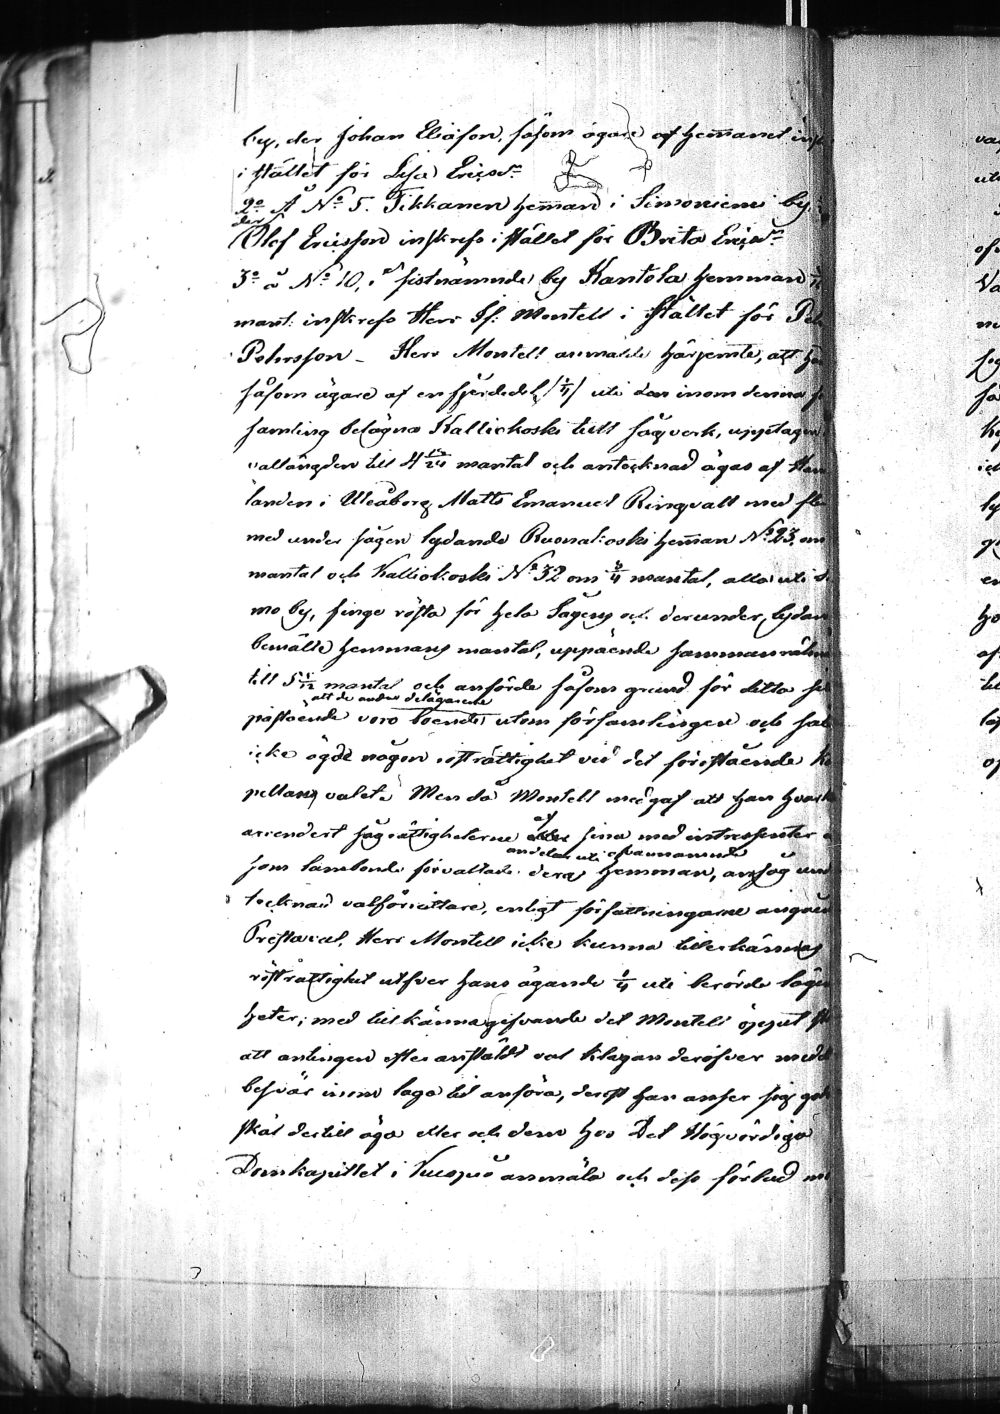 by, der Johan Eliasson, såsom ägare af hemanet
i stället för Lisa Ericsdr
2o Å No 5. Tikkanen heman i Simoniemi by,
der
Olof Ericsson inskrefs i stället för Brita Ericsdr
3o å No 10, i sistnämnde by Kantola hemman
mant: inskrefs Herr If: Montell i stället för
Pehrsson - Herr Montell anmälde härjemte, att
såsom ägare af en fjerdedel /1/4/ uti den inom denna
samling belägna Kalliokoski till sågverk, upptagen
vallängden till 4 mantal och antecknad ägas af
landen i Uleåborg Matts Emanuel Ringvall med
med under sågen lydande Ruonakoski heman No 23, om
mantal och Kalliokoski No 32 om 3/4 mantal, alla uti
mo by, finge rösta för hela Sågens och derunder lydan
bemälte hemmans mantal, uppående sammanräkna
till 5 1/12 mantal och anförde såsom grund för detta
att de andre delägarene
påstående voro boende utom församlingen och
icke ägde någon rösträttighet ved det förestående
pellans valet. Men då Montell medgaf att han hvarken
af
arrenderat sågrättigheterne sina med intressenter
andelar uti ofvannämnde
som landbonde förvaltade dera hemman, ansåg und
tecknad valförrättare, enligt författningarne angående
Prestaval, Herr Montell icke kunna tillerkännas
rösträttighet utöfver hans ägande 1/4 uti berörde lägen
heter; med tillkännagifvande det Montell öppet
att antingen efter anstäldt val klagan deröfver medelst
besvär inom laga tid anföra, derest han anser sig
skäl dertill äga eller och dem hos Det Högvördiga
Domkapitlet i Kuopio anmäla och dess förbud